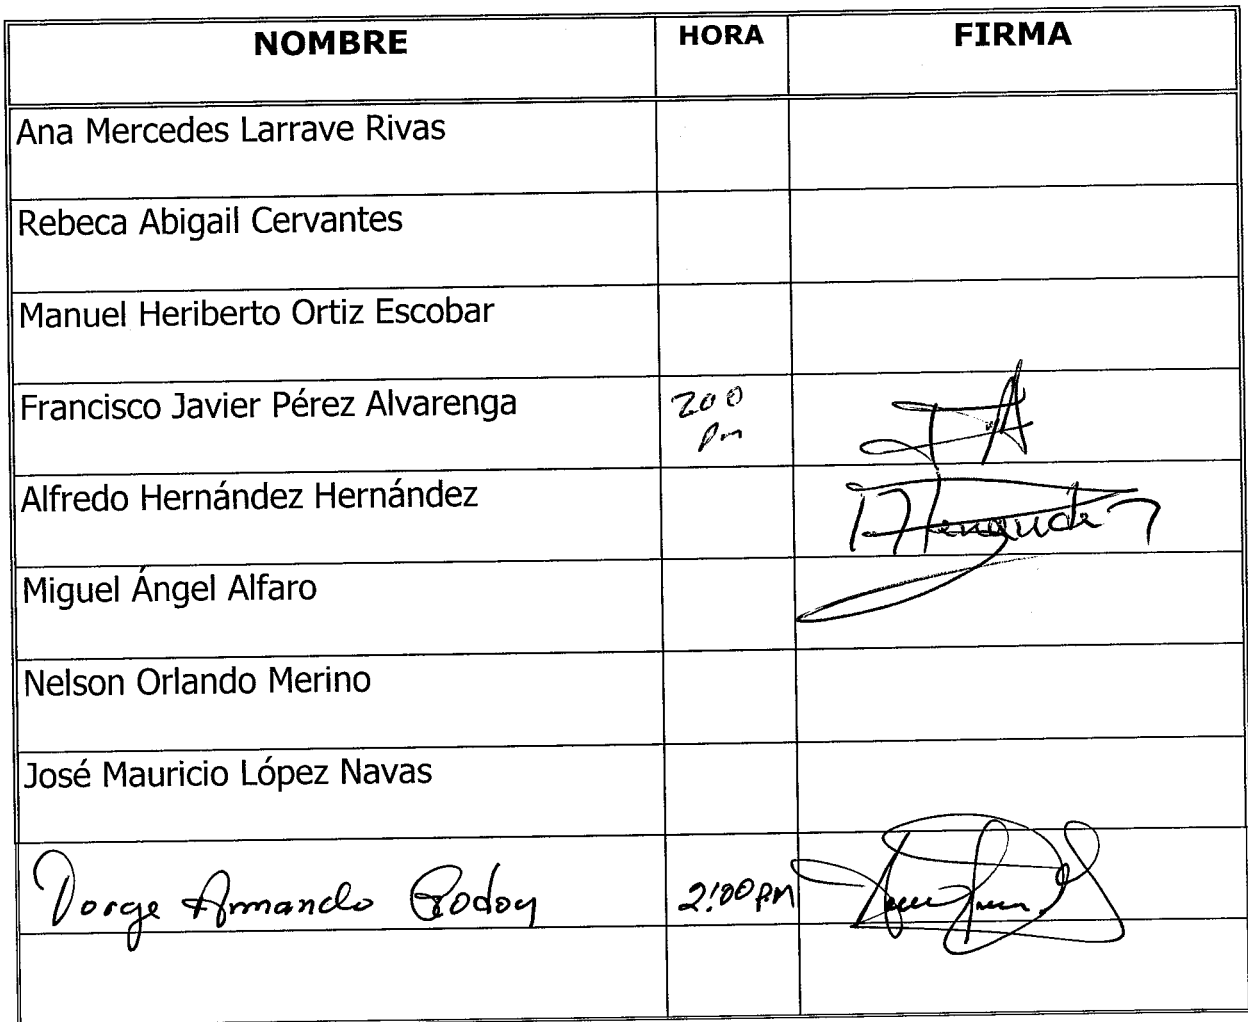 NOMBRE HORA FIRMA
Ana Mercedes Larrave Rivas
Rebeca Abigail Cervantes
Manuel Heriberto Ortiz Escobar
Francisco Javier Pérez Alvarenga 200
pm
Alfredo Hernández Hernández
Miguel Ángel Alfaro
Nelson Orlando Merino
José Mauricio López Navas
Jorge Armando Godoy 2:00 pm